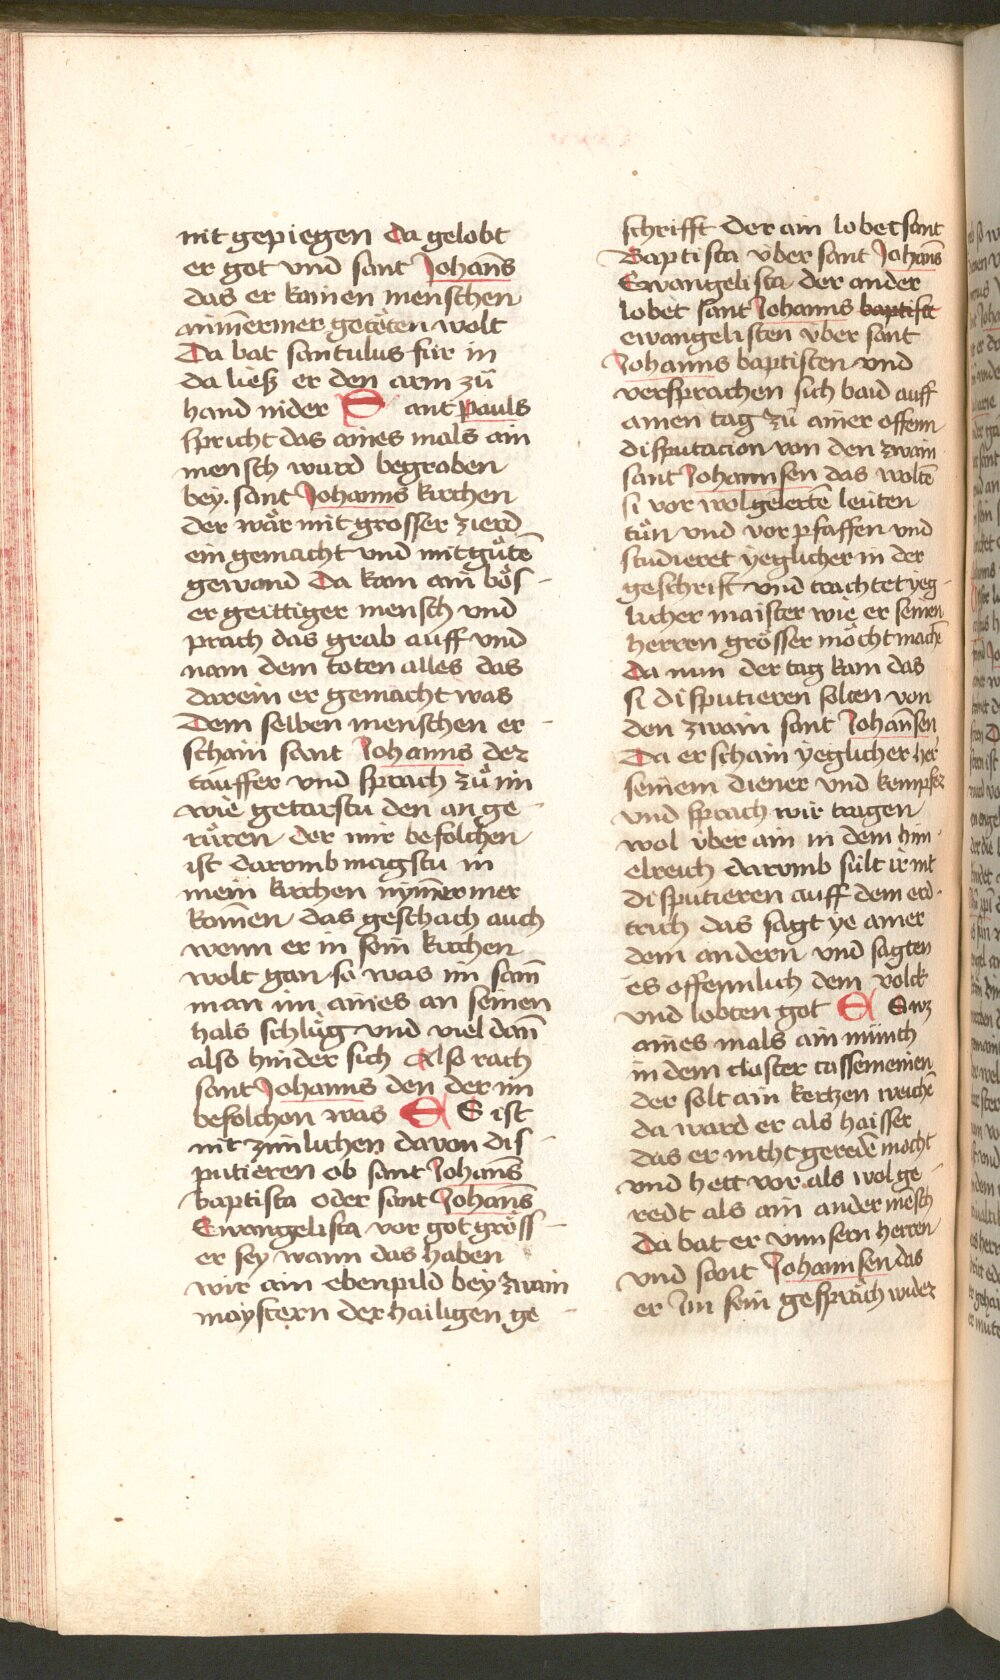 nit gepiegen Da gelobt
er got vnd sant Johan̄s
das er kainen menschen
nim̄ermer getöten wolt
Da bat santulus für in
da liesz er den arm zů
hand nider Sant pauls
spricht das aines mals ain
mensch ward begraben
bey sant Johanns kirchen
der wär mit grosser zierd
ein gemacht vnd mit gůtē
gewand Da kam ain bös
er geittiger mensch vnd
prach das grab auff vnd
nam dem toten alles das
darein er gemacht was
Dem selben menschen er
schain sant Johanns der
tauffer vnd sprach zů im
wie getarstu den an ge
rüren der mir befolchen
ist darvmb magstu in
mein kirchen nym̄er mer
komen das geschach auch
wenn er in sein kirchen
wolt gan so was im sam̄
man im aines an seinen
hals schlůg vnd viel dan̄
also hinder sich Also rach
sant Johanns den der im
befolchon was ES ist
nit zimlichen davon dis
putieren ob sant Johan̄s
baptista oder sant Johan̄s
Ewangelista vor got gröss
er sey wann das haben
wir ain ebenpild bey zwain
maystern der hailigen ge
schrifft der ain lobet sant
Baptista vber sant Johan̄s
Ewangelista der ander
lobet sant Johanns baptist
ewangelisten vber sant
Johanns baptisten vnd
versprachen sich baid auff
ainen tag zů ainer offenn
disputacion von den zwain
sant Johannsen das woltē
si vor wolgelertē leuten
tůn vnd vor pfaffen vnd
studieret yeglicher in der
geschrift vnd trachtet yeg
licher maister wie er seinen
herren grösser möcht machē
Da nun der tag kam das
si disputieren solten von
den zwain sant Johan̄sen
Da erschain yeglicher her
seinem diener vnd kempfer
vnd sprach wir tragen
wol vber ain in dem him
elreich darvmb sült ir nit
disputieren auff dem erd
trich das sagt ye ainer
dem andern vnd sagten
es offennlich dem volck
vnd lobten got ES wz
aines mals ain münch
in dem closter cassemeinen
der solt ain kertzen weichē
da ward er als haisser
das er nicht geredē mocht
vnd hett vor als wol ge
redt als ain ander mēsch
Da bat er vnnsern herren
vnd sant Johannsen das
er im sein gespräch wider